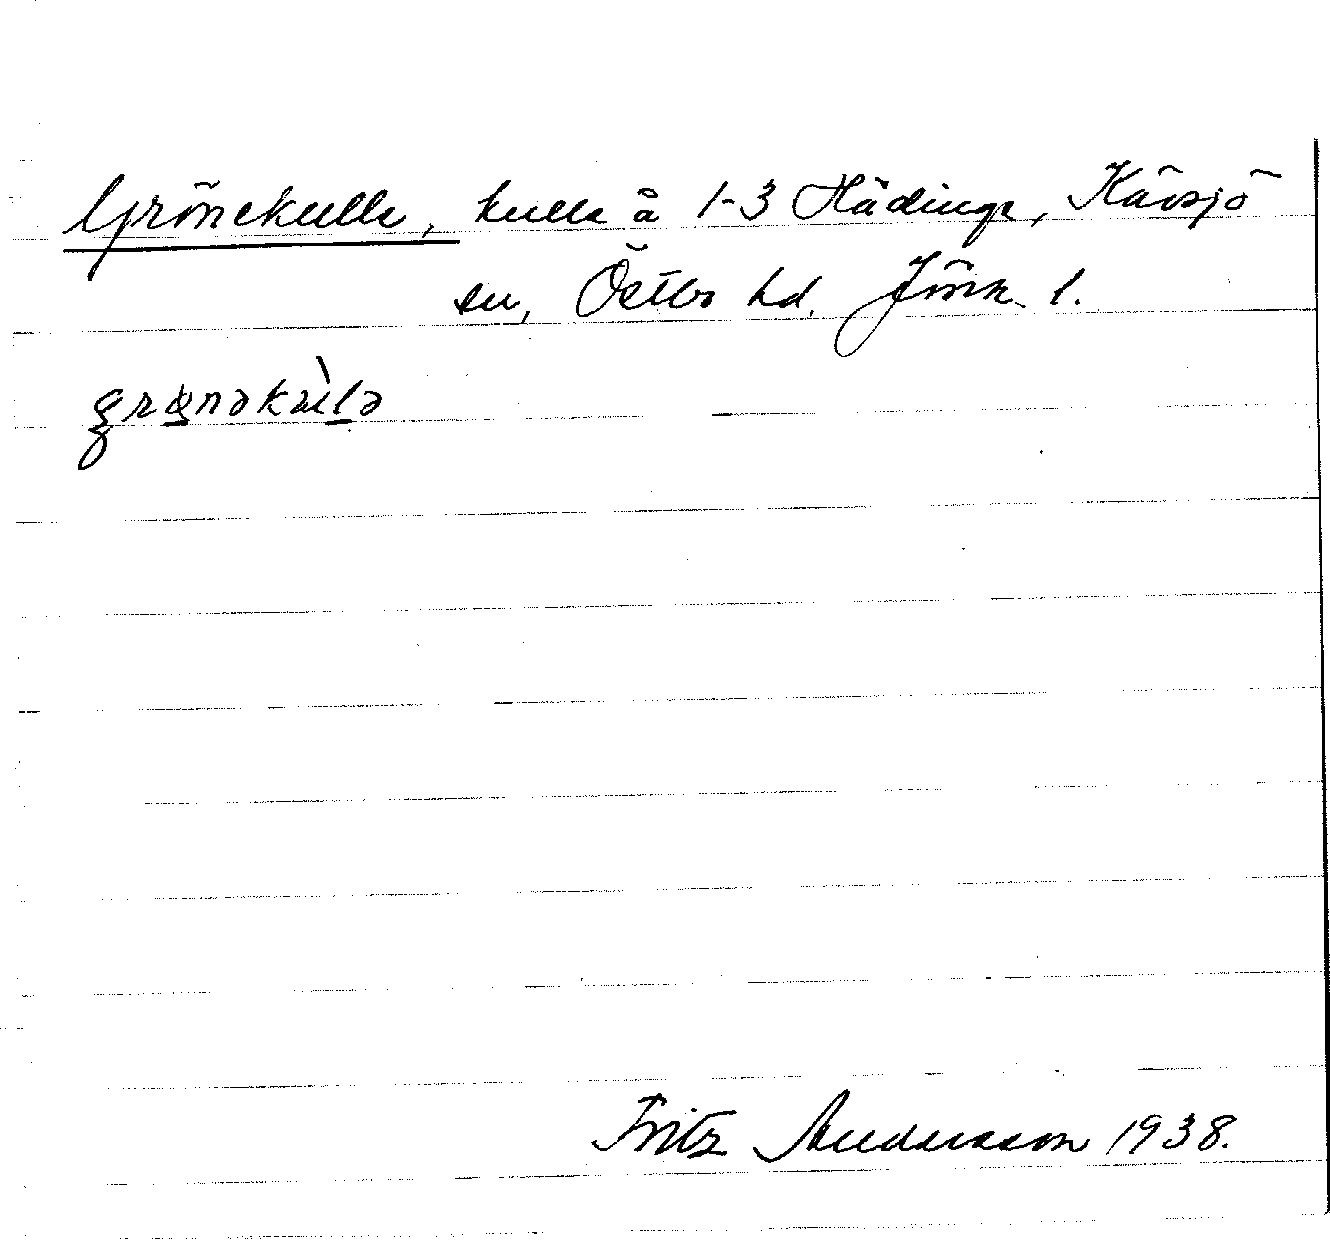 Grönekulle, kulle å 1-3 Hädinge, Kävsjö
sn, Östbo hd. Jönk l.
Fritz Andersson 1938.